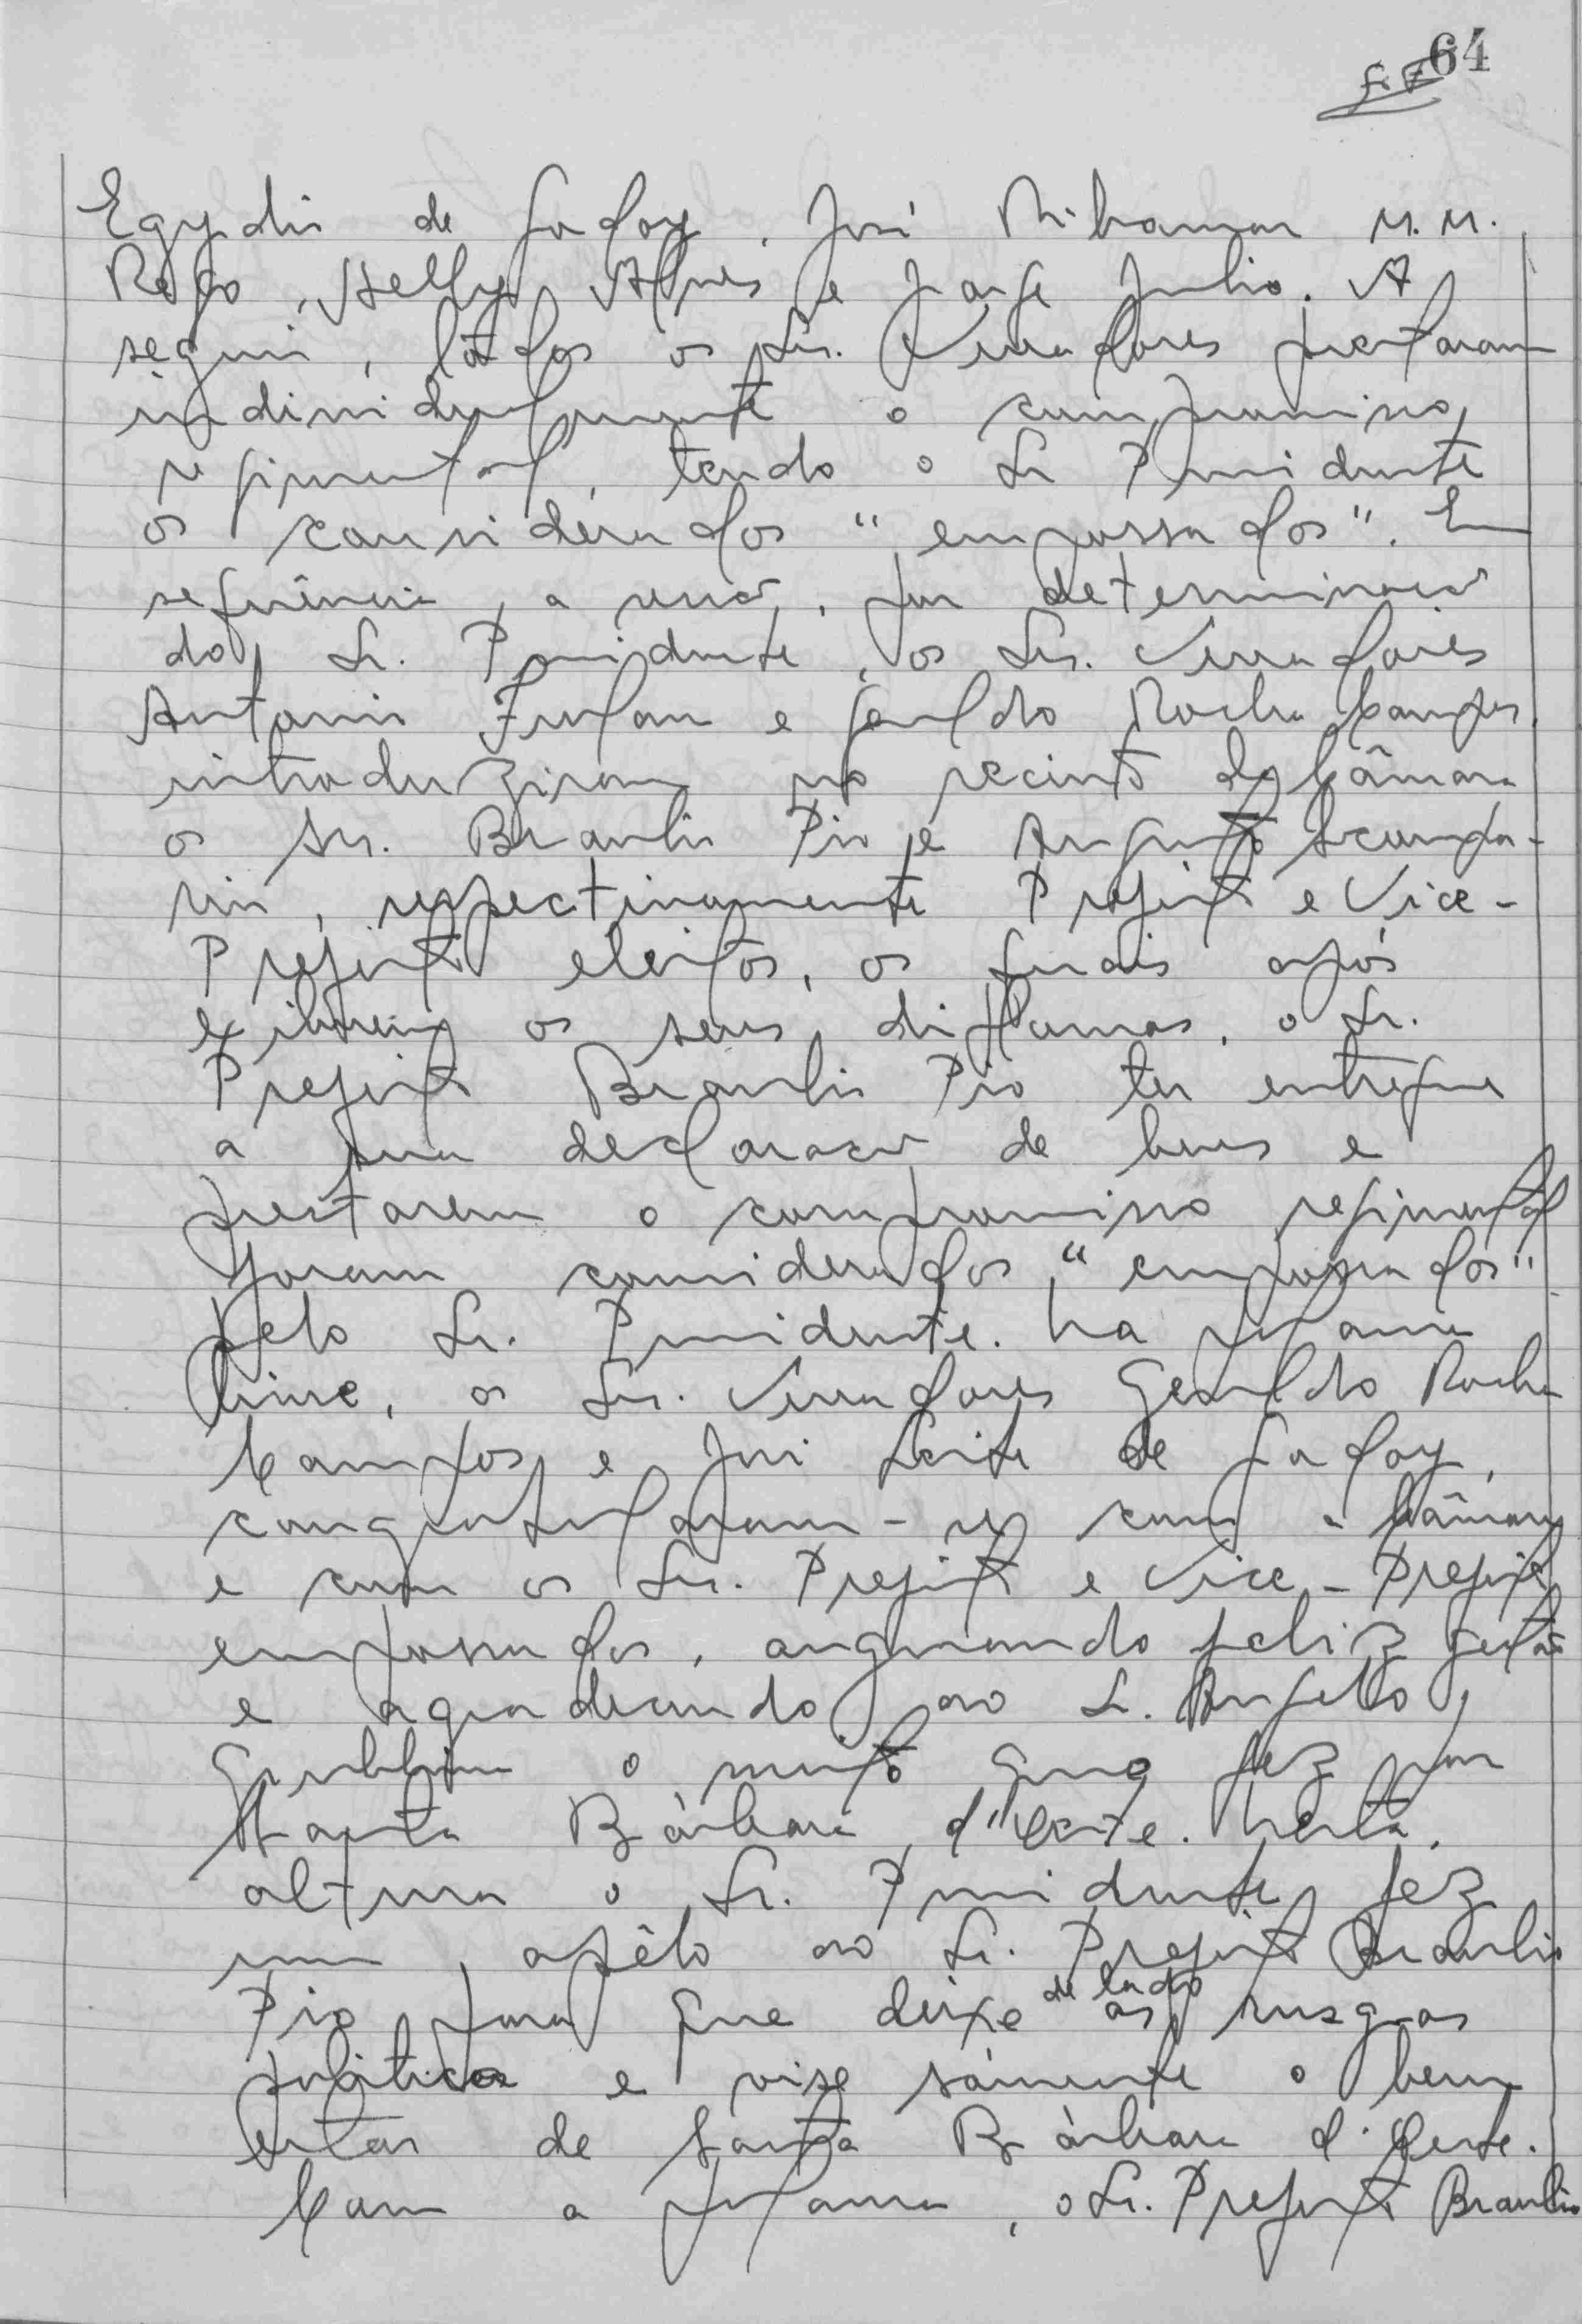 64
Egydio de Godoy, José Ribamar M.M.
Rego, Nelly Alves e Jorge Julio. A
seguir, todos os Srs. Vereadores prestaram
individualmente o compromisso
regimental, tendo o Sr Presidente
os considerados "empossados". Em
sequência, a
do Sr. Presidente, os Srs. Vereadores
Antonio Furlan e Geraldo Rocha Campos
introduziram no recinto da Câmara
o Srs. Braulio Pio e Augusto Scompa-
rin, respectivamente Prefeito e Vice-
Prefeito eleitos, os quais após
exibirem os seus diplomas, o Sr.
Prefeito Braulio Pio ter entregue
a sua declaracao de bens e
prestarem o compromisso regimental
foram considerados "empossados"
pelo Sr. Presidente. Na palavra
livre, os Srs. Vereadores Geraldo Rocha
Campos e José Leite de Godoy,
congratularam-se com a Câmara
e com os Srs. Prefeito e Vice-Prefeito
empossados, augurando feliz gestão
e agradecendo ao Sr. Angelo
o muito que fez por
Santa Bárbara d'Oeste. Nesta
altura o Sr. Presidente fez
um apêlo ao Sr. Prefeito Braulio
Pio para que deixe de lado as rusgas
politicas e vise sòmente o bem
estar de Santa Bárbara d'Oeste.
Com a palavra, o Sr. Prefeito Braulio